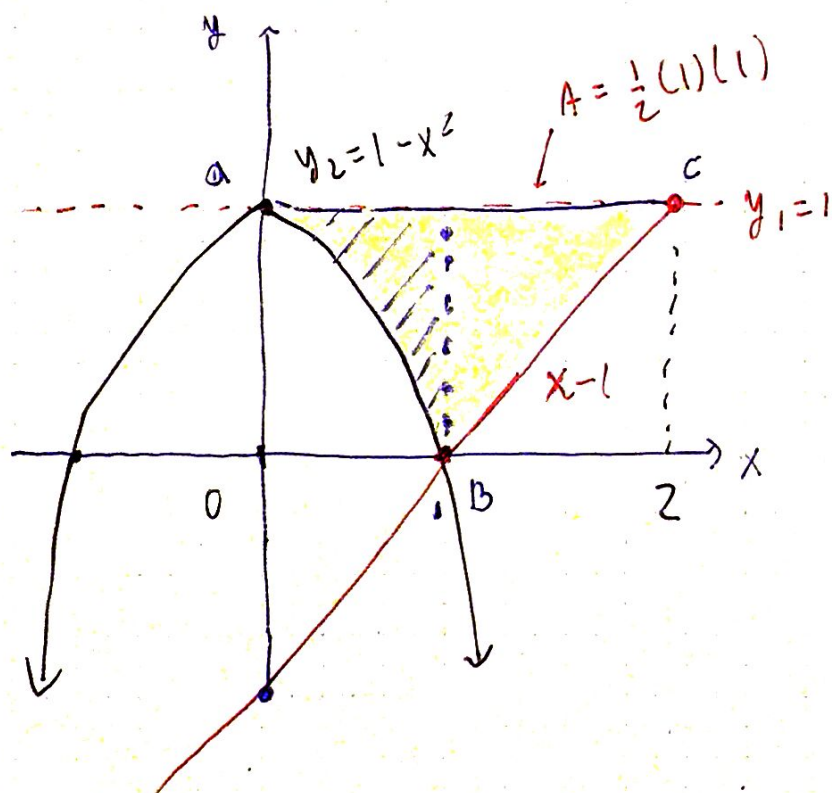 y
A = 1/2 (1)(1)
y₂ = 1 - x²
a
C
y₁ = 1
x - 1
x
0
1
B
2